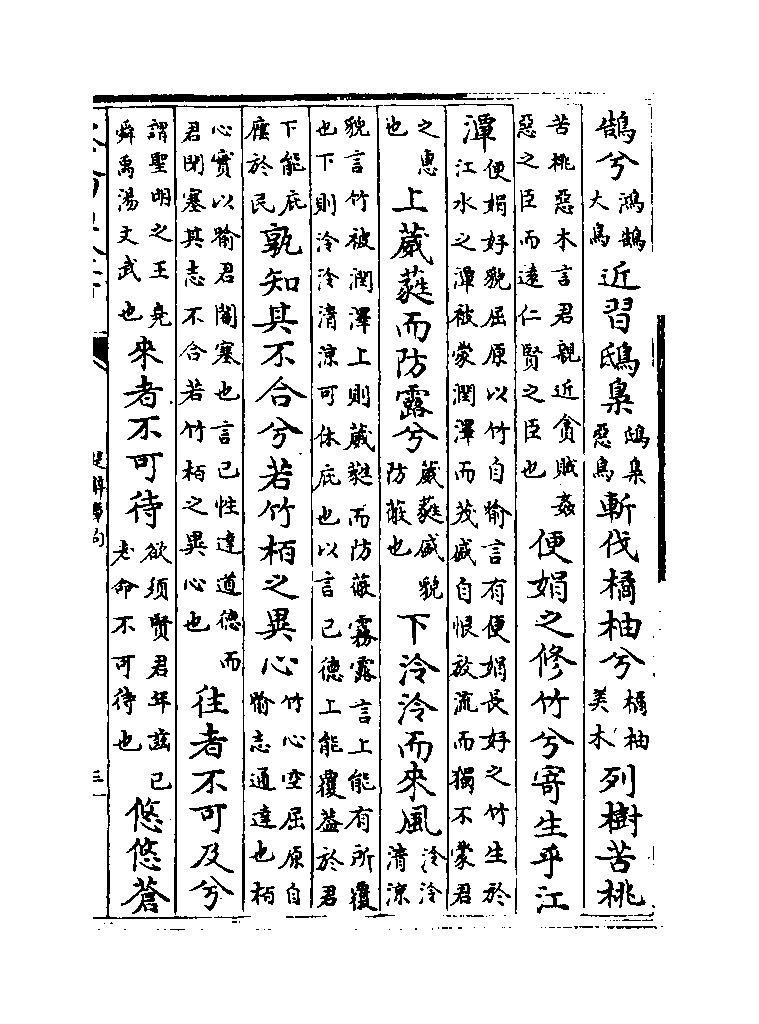 鵠兮鴻鵠大鳥近習鴟梟鴟梟惡鳥斬伐橘柚兮橘柚美木列樹苦桃
苦桃惡木言君親近貪賊姦惡之臣而遠仁賢之臣也便娟之修竹兮寄生乎江
潭便娟好貌屈原以竹自喻言有便娟長好之竹生於江水之潭被蒙潤澤而茂盛自恨放流而獨不蒙君
之惠也上葳蕤而防露兮葳蕤盛貌防蔽也下泠泠而來風泠泠清涼
貌言竹被潤澤上則葳蕤而防蔽霧露言上能有所覆也下則泠泠清涼可休庇也以言己德上能覆蓋於君
下能庇廕於民孰知其不合兮若竹栢之異心竹心空屈原自喻志通達也栢
心實以喻君闇塞也言己性達道德而君閉塞其志不合若竹栢之異心也往者不可及兮
謂聖明之王堯舜禹湯文武也來者不可待欲須賢君年齒已老命不可待也悠悠蒼